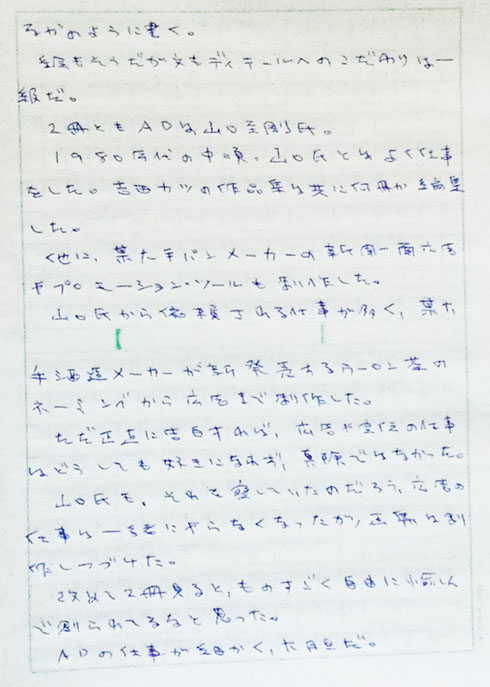 るかのように書く。
絵もそうだが文もディテールへのこだわりは一
級だ。
2冊ともADは山口至剛氏。
1980年代の中頃、山口氏とはよく仕事
をした。吉田カツの作品集は共に何冊か編集
した。
他に、某大手パンメーカーの新聞一面広告
やプロモーション・ツールも制作した。
山口氏から依頼される仕事が多く、某大
手海運メーカーが新発売するウーロン茶の
ネーミングから広告まで制作した。
ただ正直に告白すれば、広告や宣伝の仕事
はどうしても好きになれず、真険ではなかった。
山口氏も、それを察していたのだろう、広告の
仕事は一緒にやらなくなったが、画集は制
作しつづけた。
改めて2冊見ると、ものすごく自由に
で創られてるなと思った。
ADの仕事が細かく、だ。